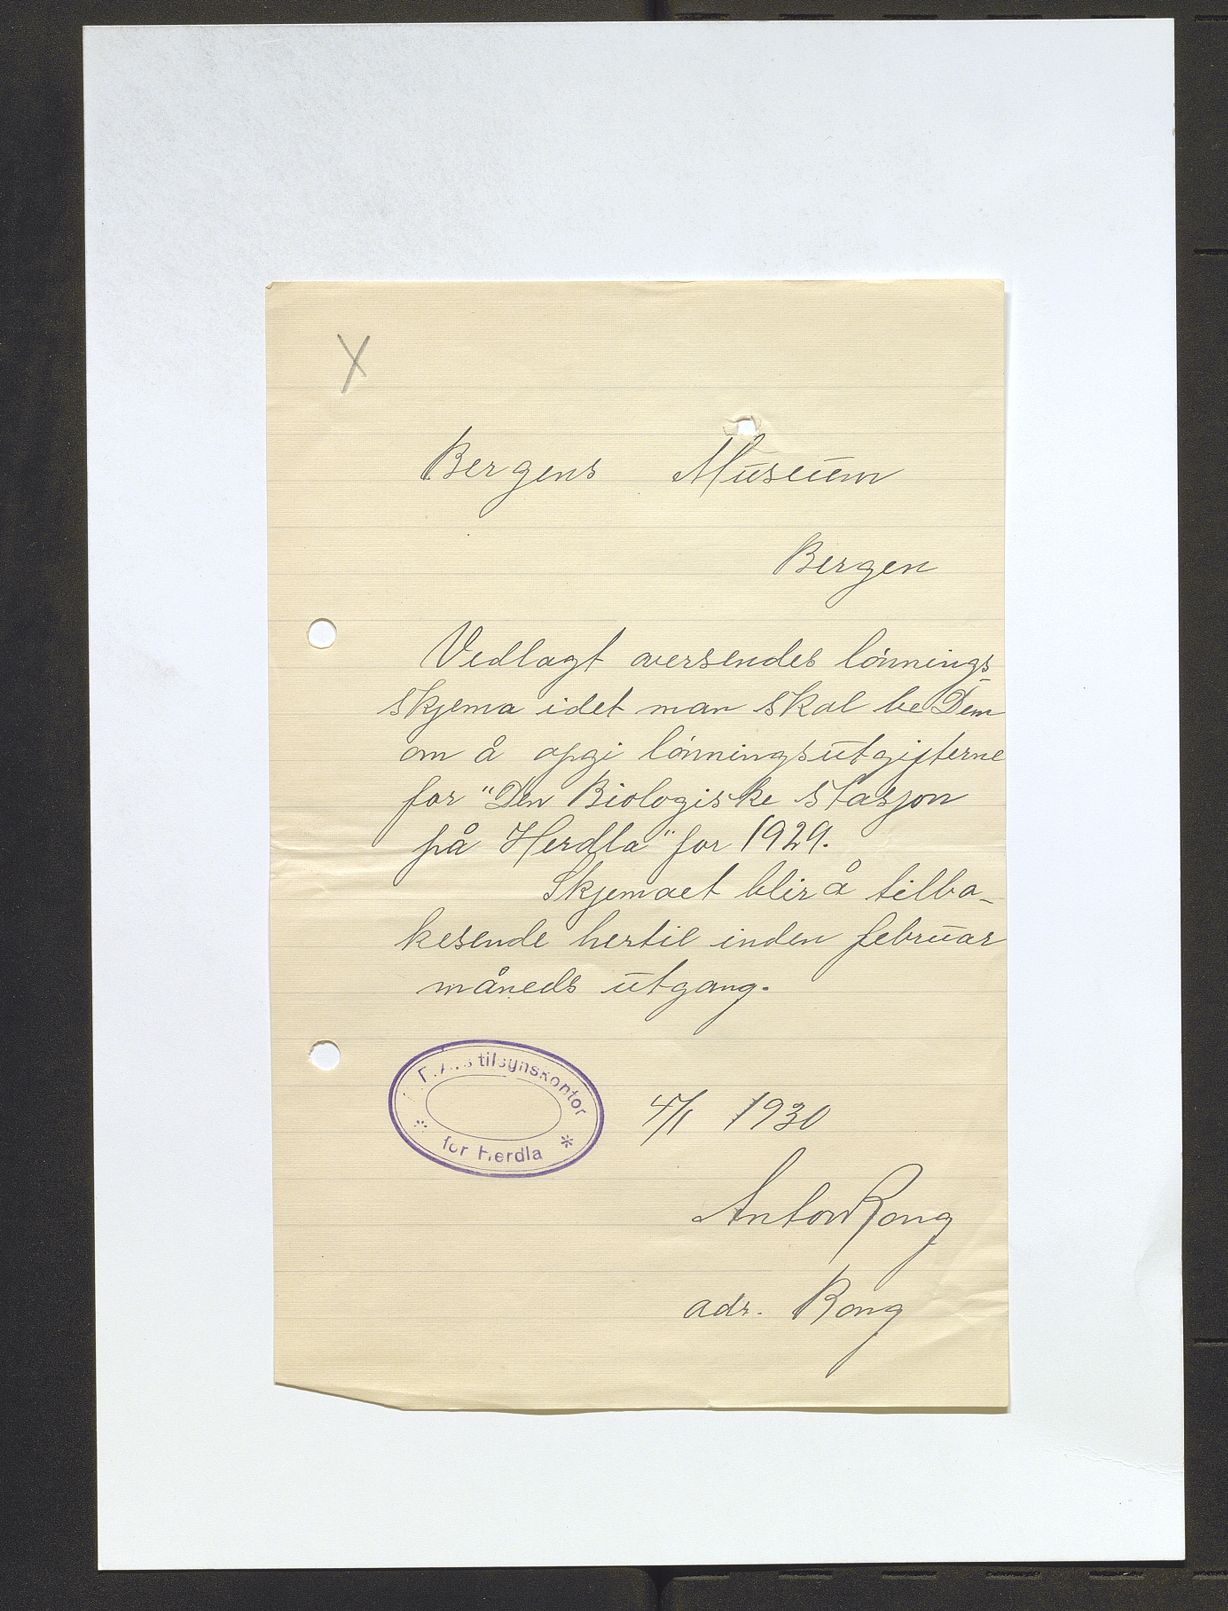 X
Bergens Museum
Bergen
Vedlagt oversendes lønnings
skjema idet man skal be Dem
om å opgi lønningsutgifterne
for "Den Biologiske stasjon
på Herdla" for 1929.
Skjemaet blir å tilba-
kesende hertil inden februar
måneds utgang.
tilsynskontor
for Herdla
4/1 1930
Anton Rong
adr. Rong